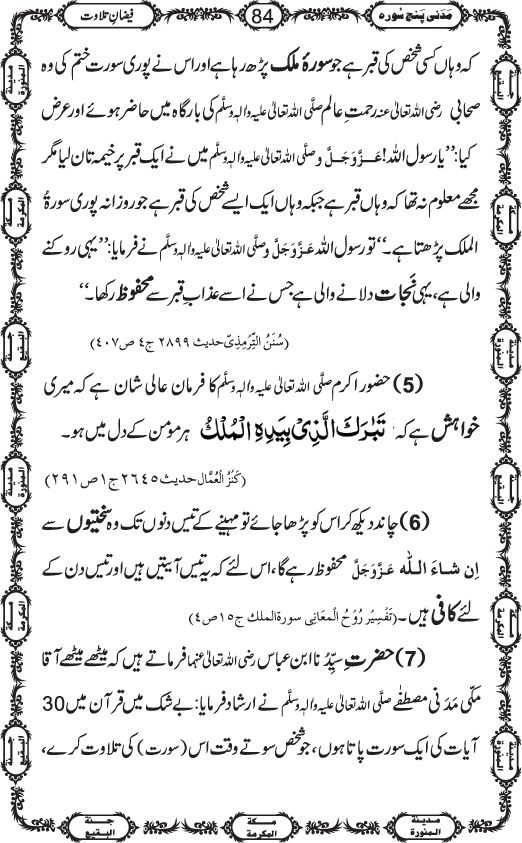 مَدَنی پَنج سُورہ
84
فیضانِ تلاوت
کہ وہاں کسی شخص کی قبر ہے جو سورۂ ملک پڑھ رہا ہے اور اس نے پوری سورت ختم کی وہ
صحابی رضی اللہ تعالیٰ عنہ رحمتِ عالم صلَّی اللہ تعالیٰ علیہ والہٖ وسلَّم کی بارگاہ میں حاضر ہوئے اور عرض
کیا: ’’یا رسول اللہ! عَزَّوَجَلَّ وصلَّی اللہ تعالیٰ علیہ والہٖ وسلَّم میں نے ایک قبر پر خیمہ تان لیا مگر
مجھے معلوم نہ تھا کہ وہاں قبر ہے جبکہ وہاں ایک ایسے شخص کی قبر ہے جو روزانہ پوری سورۃُ
الملک پڑھتا ہے۔‘‘ تو رسول اللہ عَزَّوَجَلَّ وصلَّی اللہ تعالیٰ علیہ والہٖ وسلَّم نے فرمایا: ’’یہی روکنے
والی ہے، یہی نَجات دلانے والی ہے جس نے اسے عذابِ قبر سے محفوظ رکھا۔‘‘
(سُنَنُ التِّرمِذِیّ حدیث ۲۸۹۹ ج٤ ص٤۰۷)
(5) حضورِ اکرم صلَّی اللہ تعالیٰ علیہ والہٖ وسلَّم کا فرمانِ عالی شان ہے کہ میری
خواہش ہے کہ تَبٰرَكَ الَّذِیْ بِیَدِهِ الْمُلْكُ ہر مؤمن کے دل میں ہو۔
(کَنْزُ الْعُمَّال حدیث ۲٦٤٥ ج۱ ص ۲۹۱)
(6) چاند دیکھ کر اس کو پڑھا جائے تو مہینے کے تیس دنوں تک وہ سختیوں سے
اِن شاءَ اللہ عَزَّوَجَلَّ محفوظ رہے گا، اس لئے کہ یہ تیس آیتیں ہیں اور تیس دن کے
لئے کافی ہیں۔ (تَفْسِیْرِ رُوْحُ الْمَعَانِی سورۃ الملك ج۱٥ ص٤)
(7) حضرتِ سیِّدُنا ابن عباس رضی اللہ تعالیٰ عنہما فرماتے ہیں کہ میٹھے میٹھے آقا
مکّی مَدَنی مصطفٰے صلَّی اللہ تعالیٰ علیہ والہٖ وسلَّم نے ارشاد فرمایا: بے شک میں قرآن میں 30
آیات کی ایک سورت پاتا ہوں، جو شخص سوتے وقت اس (سورت) کی تلاوت کرے،
مدینۃ المنورۃ
مکۃ المکرمۃ
جنۃ البقیع
مدینۃ المنورۃ
مکۃ المکرمۃ
جنۃ البقیع
جنۃ البقیع
مکۃ المکرمۃ
مدینۃ المنورۃ
جنۃ البقیع
مکۃ المکرمۃ
مدینۃ المنورۃ
مدینۃ المنورۃ
مکۃ المکرمۃ
جنۃ البقیع